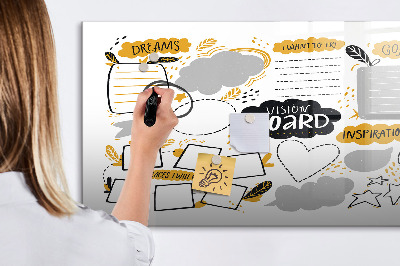 DREAMS
I WANT TO!
GO
VISION
BOARD
INSPIRATION